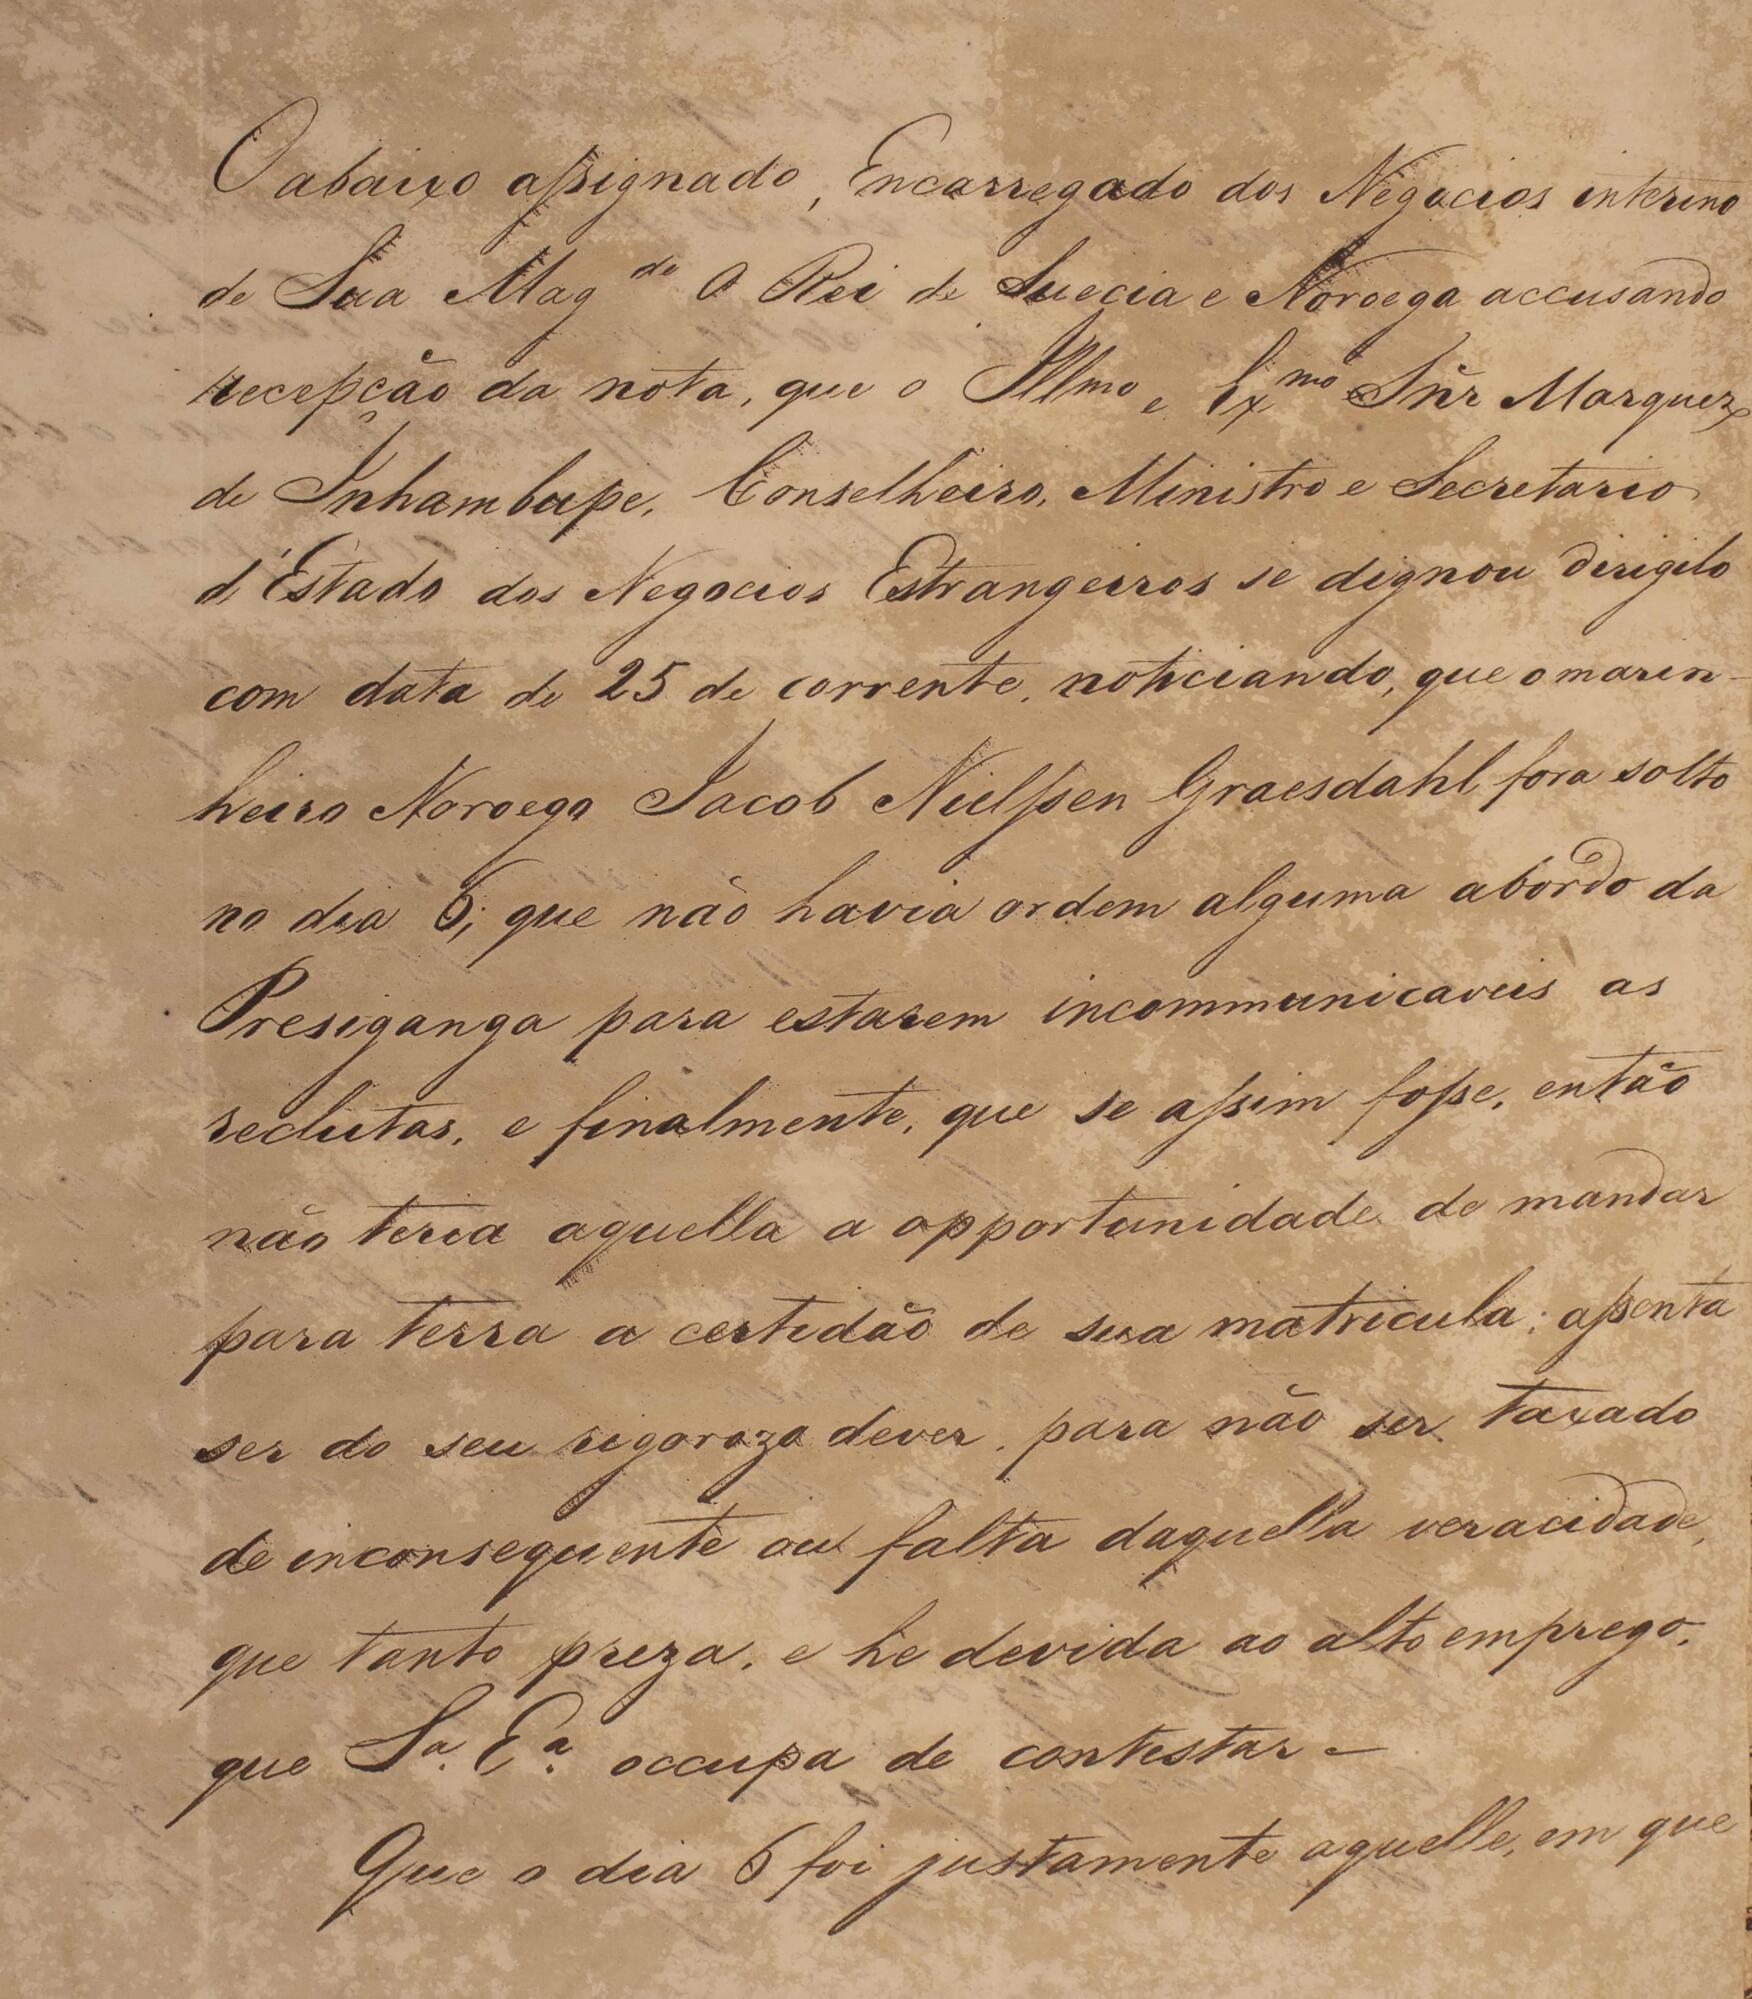 O abaixo assignado, Encarregado dos Negocios interino
de Sua Mag.de O Rei de Suecia e Noroega accusando
recepção da nota, que o Illmo e Exmo Sñr Marquez
de Inhambupe, Conselheiro, Ministro e Secretario
d'Estado dos Negocios Estrangeiros se dignou dirigilo
com data de 25 de corrente, noticiando, que o marin-
heiro Noroego Jacob Nielssen Graesdahl fora solto
no dia 6; que não havia ordem alguma abordo da
Presiganga para estarem incommunicaveis as
reclutas, e finalmente, que se assim fosse, então
não teria aquella a opportunidade de mandar
para terra a certidão de sua matricula; assenta
ser do seu rigorozo dever, para não ser taxado
de inconsequente ou falta daquella veracidade,
que tanto preza, e he devida ao alto emprego,
que Sa. Ea. occupa de contestar –
Que o dia 6 foi justamente aquelle, em que